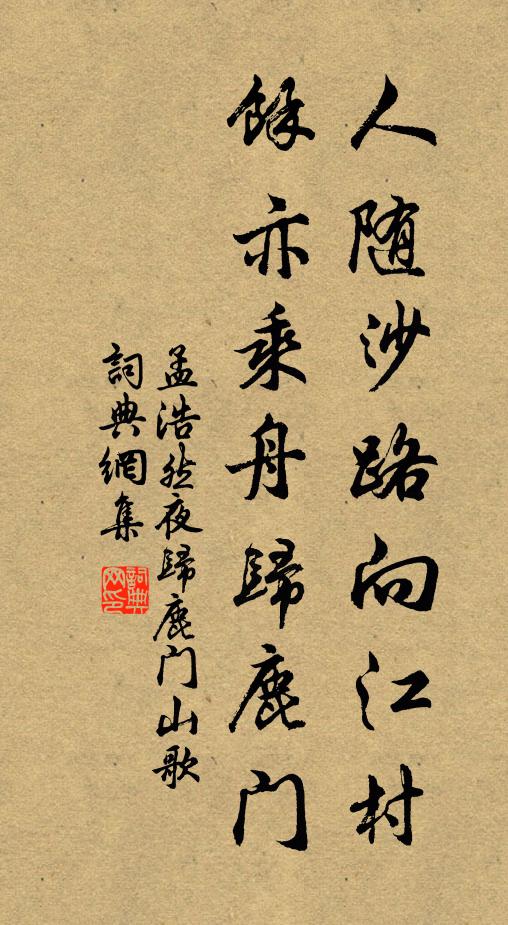 人随沙路向江村
餘亦乘舟歸鹿门
孟浩然夜歸鹿门山歌
詞典網集
詞典
网印